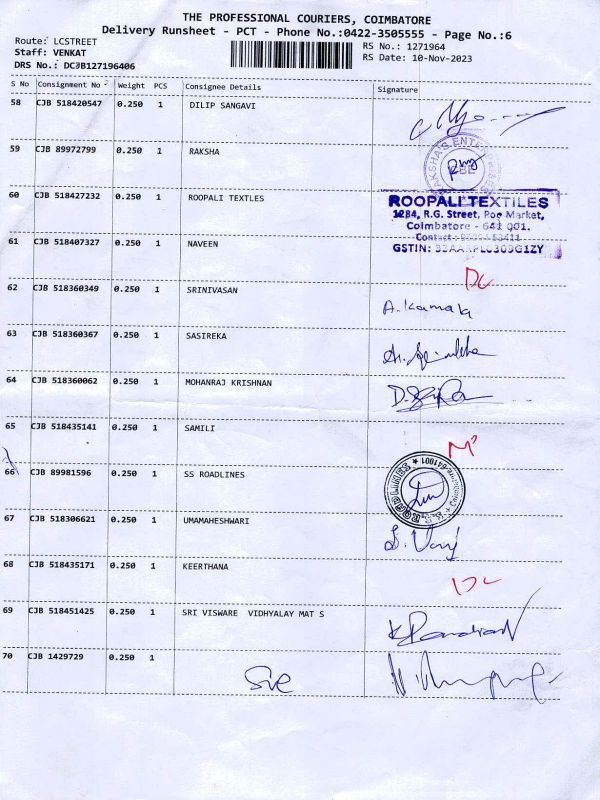 THE PROFESSIONAL COURIERS, COIMBATORE
Delivery Runsheet - PCT - Phone No.:0422-3505555 - Page No.:6
Route: LCSTREET
Staff: VENKAT
DRS No.: DCJB127196406
RS No.: 1271964
RS Date: 10-Nov-2023
S No Consignment No Weight PCS Consignee Details Signature
58 CJB 518420547 0.250 1 DILIP SANGAVI
59 CJB 89972799 0.250 1 RAKSHA
60 CJB 518427232 0.250 1 ROOPALI TEXTLES
ROOPALI TEXTILES
1284, R.G. Street, Poe Market,
Coimbatore - 641 001.
61 CJB 518407327 0.250 1 NAVEEN
GSTIN:
62 CJB 518360349 0.250 1 SRINIVASAN
A. Kamala
63 CJB 518360367 0.250 1 SASIREKA
64 CJB 518360062 0.250 1 MOHANRAJ KRISHNAN
65 CJB 518435141 0.250 1 SAMILI
66 CJB 89981596 0.250 1 SS ROADLINES
67 CJB 518306621 0.250 1 UMAMAHESHWARI
68 CJB 518435171 0.250 1 KEERTHANA
69 CJB 518451425 0.250 1 SRI VISWARE VIDHYALAY MAT S
70 CJB 1429729 0.250 1